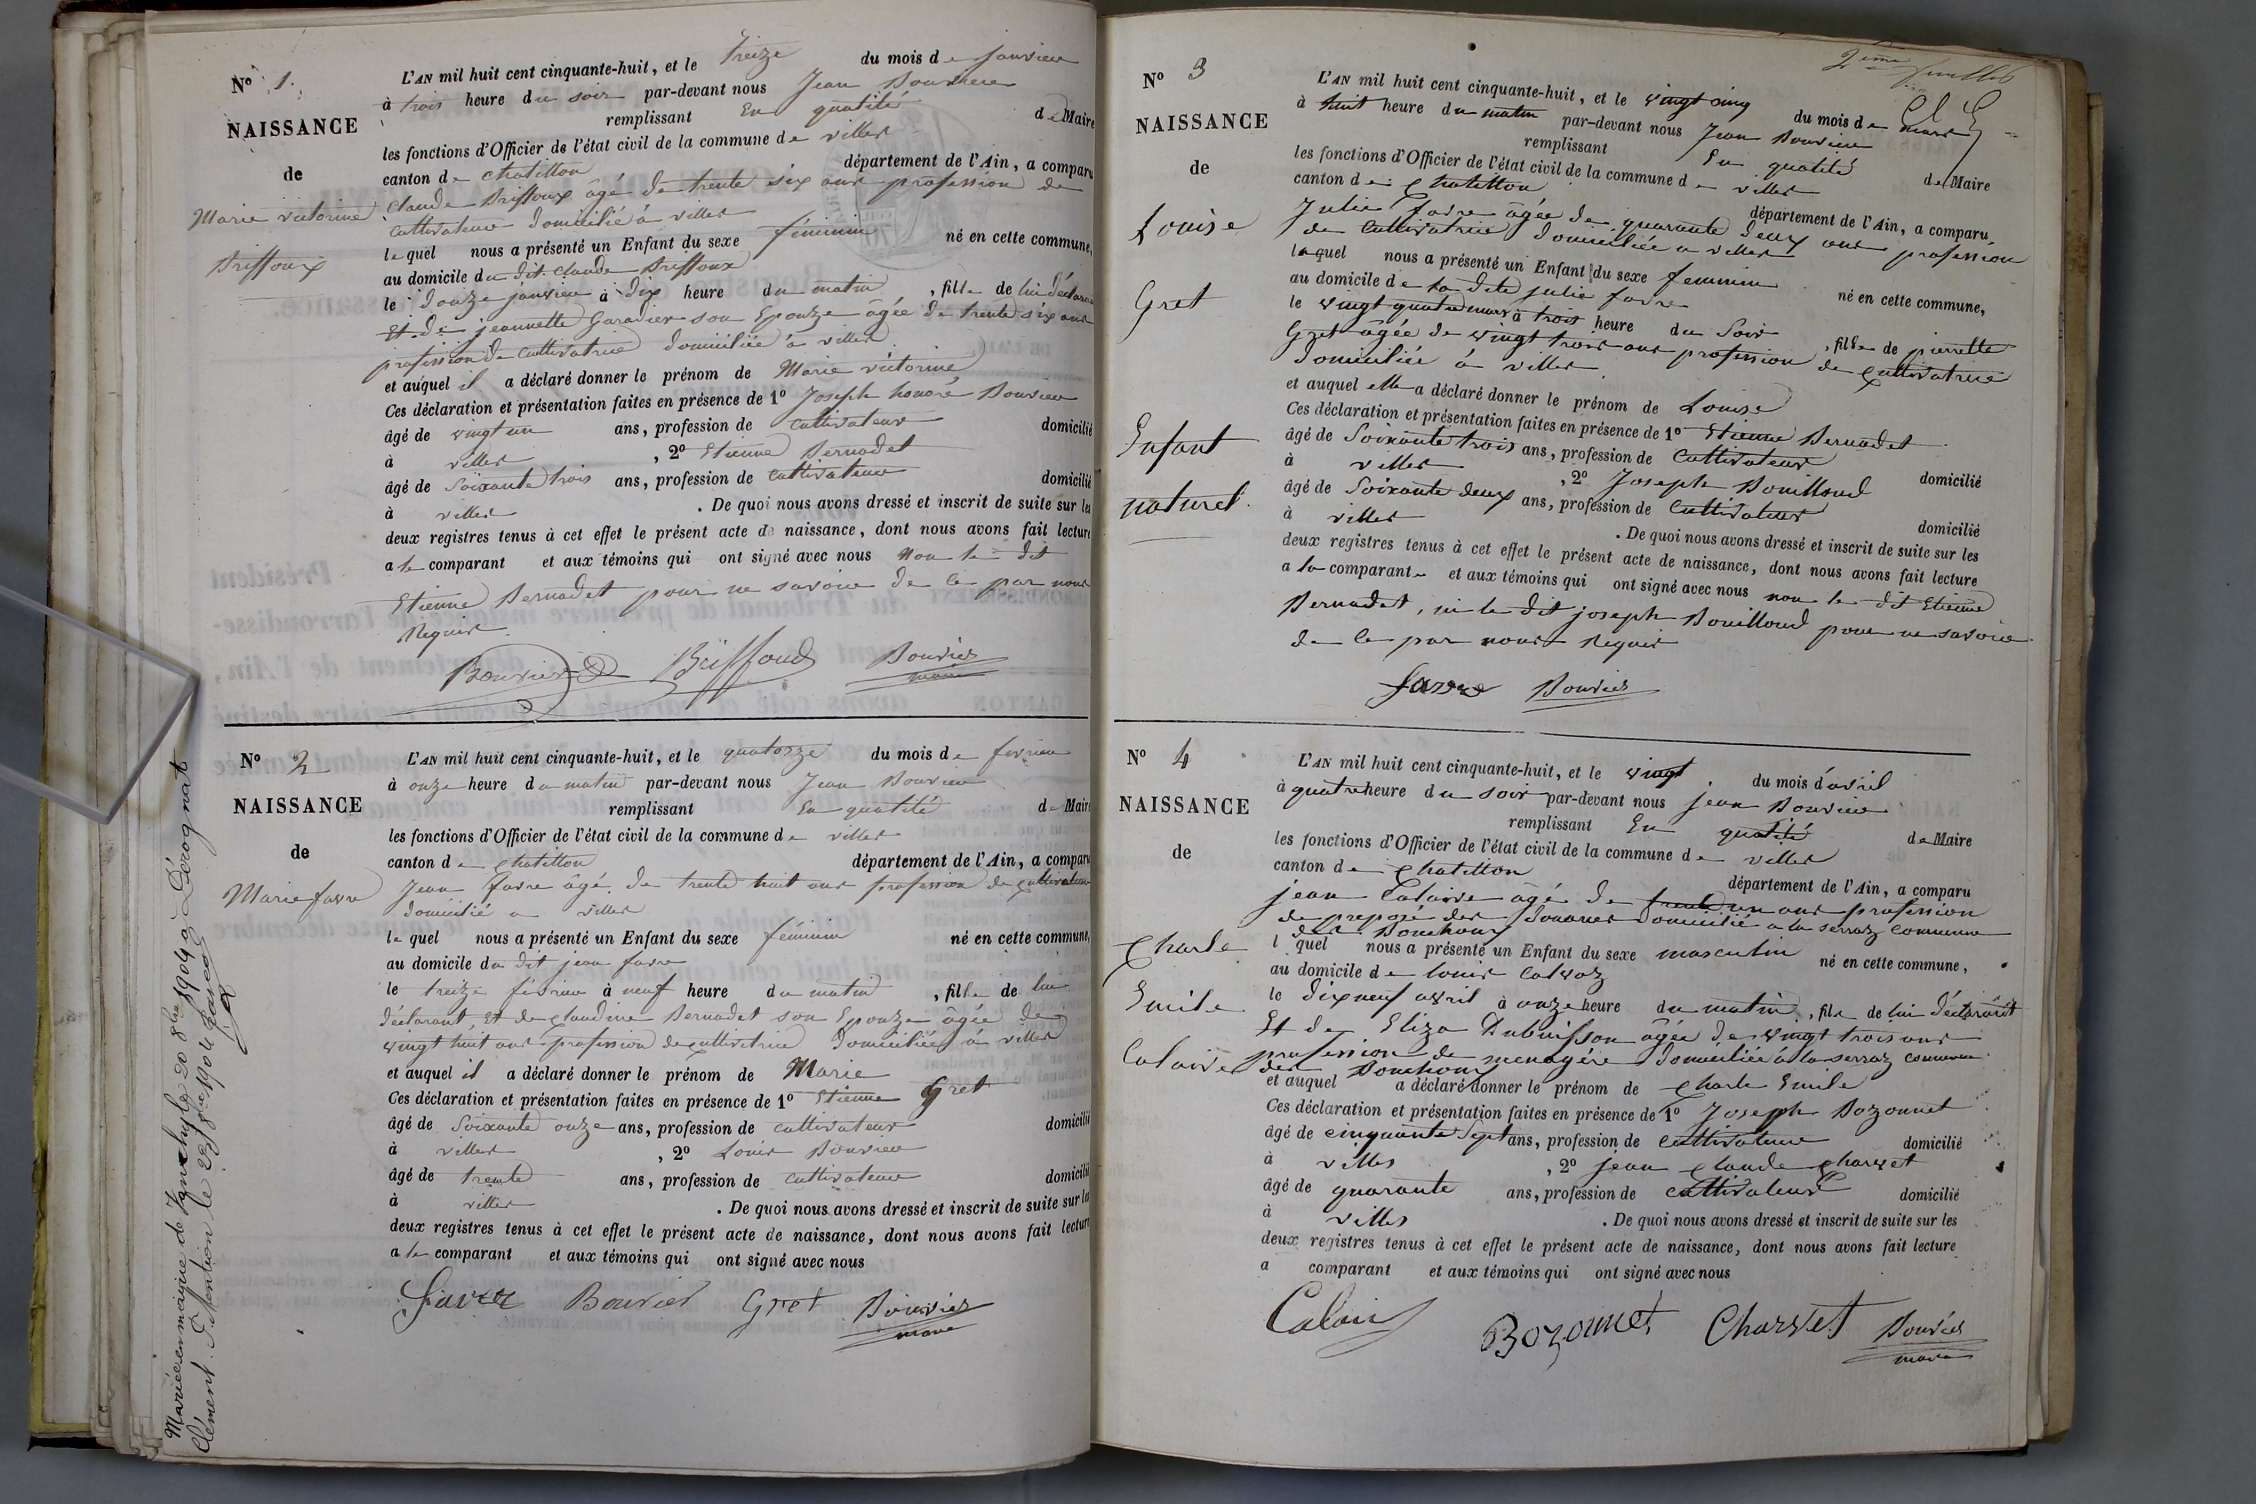 N° 1.
NAISSANCE
de
Marie victorine
Briffoux
L'AN mil huit cent cinquante-huit, et le treize du mois de janvier
à trois heure du soir par-devant nous Jean Bouvier
remplissant En qualité de Maire
les fonctions d'Officier de l'état civil de la commune de villes
canton de chatillon département de l'Ain, a comparu
Claude Briffoux âgé de trente six ans profession de
cultivateur domicilié à villes
lequel nous a présenté un Enfant du sexe féminin né en cette commune,
au domicile du dit Claude Briffoux
le douze janvier à dix heure du matin, fille de lui déclarant
Et de jeannette son Epouze âgée de trente six ans
profession de cultivatrice domiciliée à villes
et auquel il a déclaré donner le prénom de Marie victorine
Ces déclaration et présentation faites en présence de 1° Joseph honoré Bouvier
âgé de vingt un ans, profession de cultivateur domicilié
à villes, 2° Etienne Bernadet
âgé de Soixante trois ans, profession de cultivateur domicilié
à villes. De quoi nous avons dressé et inscrit de suite sur les
deux registres tenus à cet effet le présent acte de naissance, dont nous avons fait lecture
a le comparant et aux témoins qui ont signé avec nous non le dit
Etienne Bernadet pour ne savoir de ce par nous
Requis
Bouvier Briffoud Bouvier
maire
N° 2
NAISSANCE
de
Marie favre
L'AN mil huit cent cinquante-huit, et le quatorze du mois de fevrier
à onze heure du matin par-devant nous Jean Bouvier
remplissant En qualité de Maire
les fonctions d'Officier de l'état civil de la commune de villes
canton de chatillon département de l'Ain, a comparu
Jean favre âgé de trente huit ans profession de cultivateur
domicilié a villes
lequel nous a présenté un Enfant du sexe féminin né en cette commune,
au domicile du dit jean favre
le treize février à neuf heure du matin, fille de lui
déclarant, Et de claudine Bernadet son Epouze âgée de
vingt huit ans profession de cultivatrice domiciliée à villes
et auquel il a déclaré donner le prénom de Marie
Ces déclaration et présentation faites en présence de 1° Etienne Gret
âgé de Soixante onze ans, profession de cultivateur domicilié
à villes, 2° Louis Bouvier
âgé de trente ans, profession de cultivateur domicilié
à villes. De quoi nous avons dressé et inscrit de suite sur les
deux registres tenus à cet effet le présent acte de naissance, dont nous avons fait lecture
a le comparant et aux témoins qui ont signé avec nous
Favre Bouvier Gret Bouvier
maire
Mariée en mairie de 20 8bre 1904 à Dérognat
Clément. Mention le 22 8bre 1904
2ème feuillet
N° 3
NAISSANCE
de
Louise
Gret
Enfant
naturel.
L'AN mil huit cent cinquante-huit, et le vingt cinq du mois de mars
à huit heure du matin par-devant nous Jean Bouvier
remplissant En qualité de Maire
les fonctions d'Officier de l'état civil de la commune de villes
canton de chatillon département de l'Ain, a comparu
Julie favre âgée de quarante deux ans profession
de cultivatrice domiciliée a villes
laquel nous a présenté un Enfant du sexe feminin né en cette commune,
au domicile de la dite julie favre
le vingt quatre mars à trois heure du Soir, fille de pierrette
Gret âgée de vingt trois ans profession de cultivatrice
domiciliée à villes
et auquel elle a déclaré donner le prénom de Louise
Ces déclaration et présentation faites en présence de 1° Etienne Bernadet
âgé de Soixante trois ans, profession de cultivateur domicilié
à villes, 2° Joseph Bouilloud
âgé de Soixante deux ans, profession de cultivateur domicilié
à villes. De quoi nous avons dressé et inscrit de suite sur les
deux registres tenus à cet effet le présent acte de naissance, dont nous avons fait lecture
a la comparante et aux témoins qui ont signé avec nous non le dit Etienne
Bernadet, ni le dit joseph Bouilloud pour ne savoir
de ce par nous Requis
favre Bouvier
N° 4
NAISSANCE
de
Charle
Emile
Calaive
L'AN mil huit cent cinquante-huit, et le vingt du mois d'avril
à quatre heure du soir par-devant nous jean Bouvier
remplissant En qualité de Maire
les fonctions d'Officier de l'état civil de la commune de villes
canton de Chatillon département de l'Ain, a comparu
jean Calaive âgé de trente un ans profession
de preposé des Douanes domicilié a la serraz commune
des Bouchoux
l quel nous a présenté un Enfant du sexe masculin né en cette commune,
au domicile de louis calvoz
le dix neuf avril à onze heure du matin, fils de lui déclarant
Et de Eliza Dubuisson âgée de vingt trois ans
profession de menagére domiciliée à la serraz commune
des Bouchoux
et auquel a déclaré donner le prénom de Charle Emile
Ces déclaration et présentation faites en présence de 1° Joseph Bozonnet
âgé de cinquante Sept ans, profession de cultivateur domicilié
à villes, 2° jean claude charvet
âgé de quarante ans, profession de cultivateur domicilié
à villes. De quoi nous avons dressé et inscrit de suite sur les
deux registres tenus à cet effet le présent acte de naissance, dont nous avons fait lecture
a comparant et aux témoins qui ont signé avec nous
Bozonnet Charvet Bouvier
maire